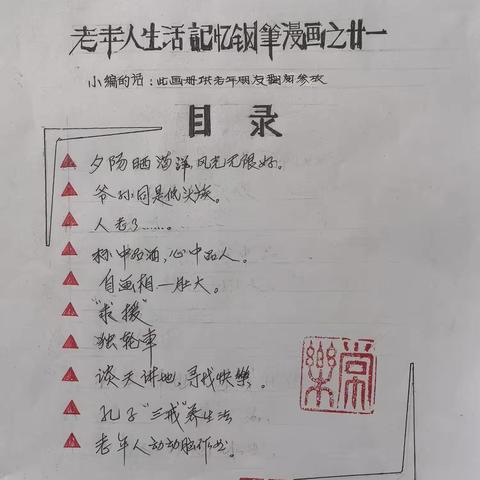 老年人生活記忆钢筆漫画之廿一
小编的话：此画册供老年朋友翻阅参考
目录
夕陽晒海洋,风光无限好。
爷孙同是低头族。
人老了……。
杯中品酒,心中品人。
自画相一肚大。
"求援"
独轮車
谈天讲地,寻找快樂。
孔子"三戒"养生法
老年人动动脑作业。
常樂